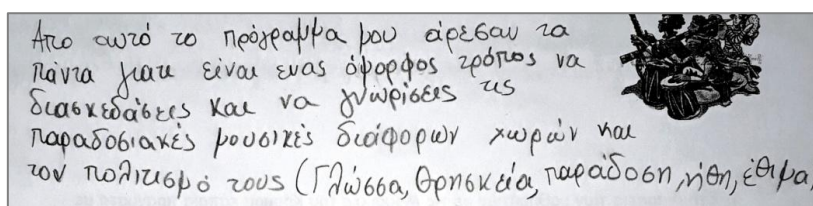 Απο αυτό το πρόγραμμα μου άρεσαν τα
πάντα γιατι είναι ενας όμορφος τρόπος να
διασκεδάσεις και να γνωρίσεις τις
παραδοσιακές μουσικές διάφορων χωρών και
τον πολιτισμό τους (Γλώσσα, θρησκεία, παράδοση, ήθη, έθιμα,